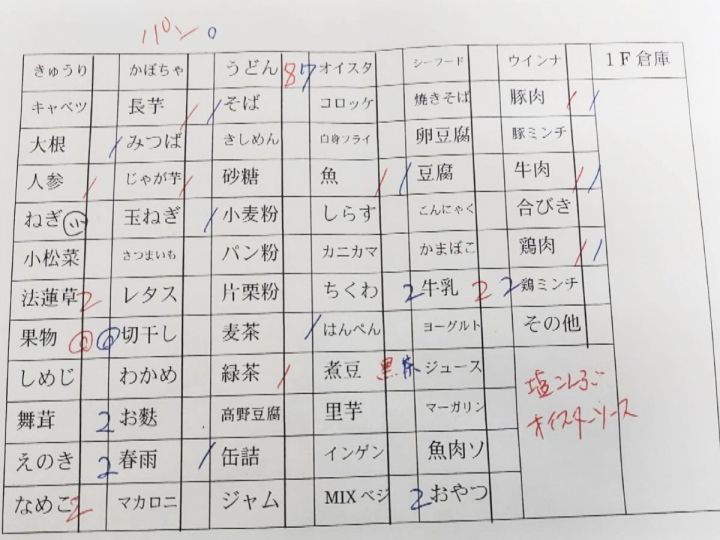 パン 0
きゅうり かぼちゃ うどん 8 7 オイスタ シーフード ウインナ 1F倉庫
キャベツ 長芋 / / そば コロッケ 焼きそば 豚肉 / /
大根 / みつば きしめん 白身フライ 卵豆腐 豚ミンチ
人参 / じゃが芋 / 砂糖 魚 / / 豆腐 牛肉 / /
ねぎ 小 玉ねぎ / 小麦粉 しらす こんにゃく 合びき
小松菜 さつまいも パン粉 カニカマ かまぼこ 鶏肉 / /
法蓮草 2 レタス 片栗粉 ちくわ 2 牛乳 2 2 鶏ミンチ
果物 切干し 麦茶 / はんぺん ヨーグルト その他
しめじ わかめ 緑茶 / 煮豆 黒 茶 ジュース
塩こんぶ
舞茸 2 お麩 高野豆腐 里芋 マーガリン
オイスターソース
えのき 2 春雨 / 缶詰 インゲン 魚肉ソ
なめこ 2 マカロニ ジャム MIXベジ 2 おやつ